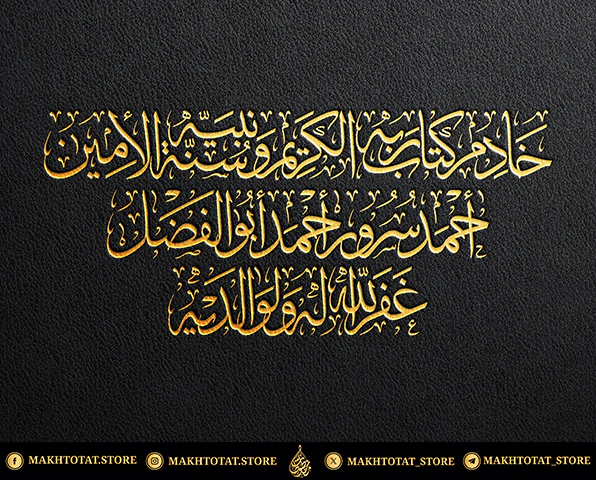 خَادِم كِتَابِ رَبِهِ الْكَرِيمِ وَسُنَّة نَبِيِّهِ الأَمِين
أَحْمَد سُرُور أَحْمَد أَبُو الْفَضْل
غَفَرَ اللهُ لَهُ وَلِوَالِدَيْهِ
MAKHTOTAT.STORE MAKHTOTAT.STORE MAKHTOTAT_STORE MAKHTOTAT_STORE